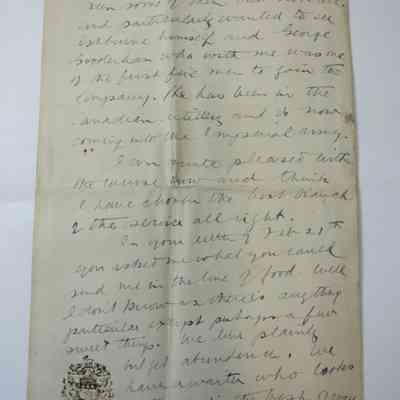 seen some of them
and particularly wanted to see
himself and George
Gooderham who with me was one
of the first five men to join the
Company. He has been in the
Canadian artillery and is now
coming into the Imperial army.
I am quite pleased with
the course now and think
I have chosen the best branch
of the service all right.
In your letter of Feb 21st
you asked me what you could
send me in the line of food. Well
I don't know as there's anything
particular except perhaps a few
sweet things. We live plainly
but get abundance. We
have a waiter who looks